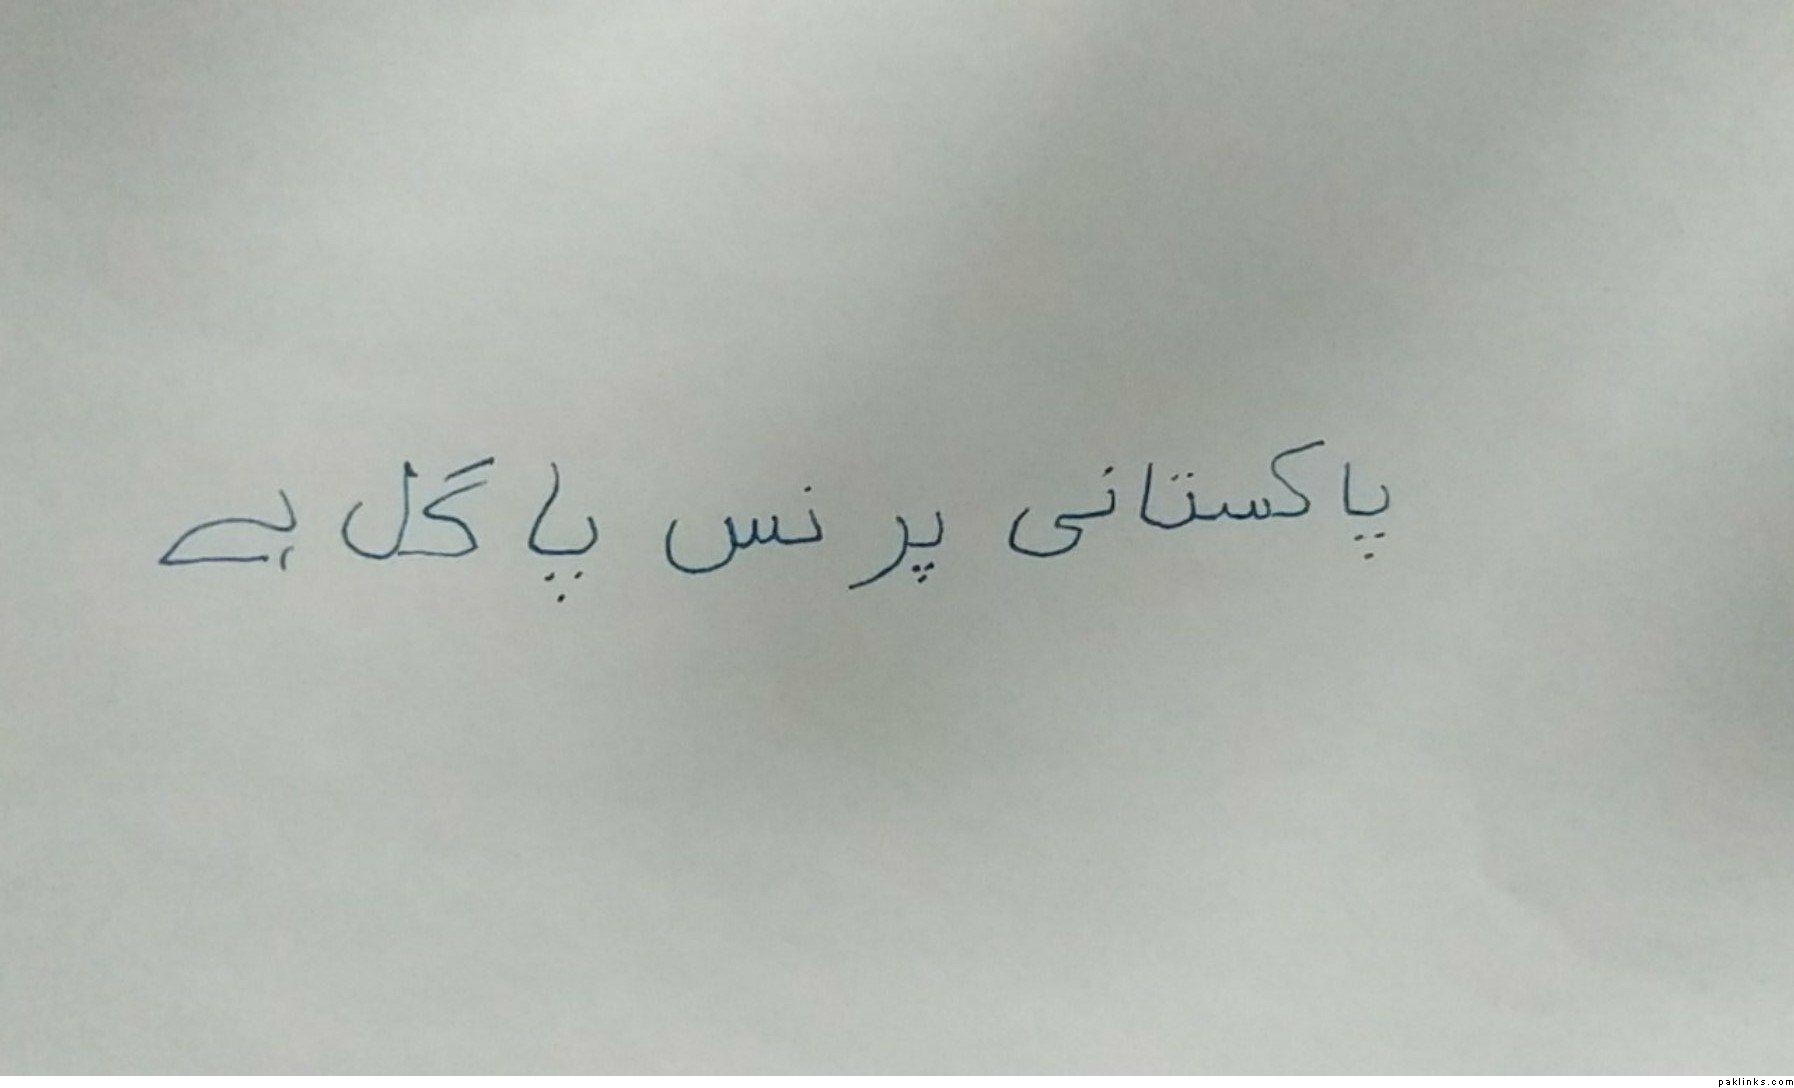 پاکستانی پرنس پاگل ہے
paklinks.com